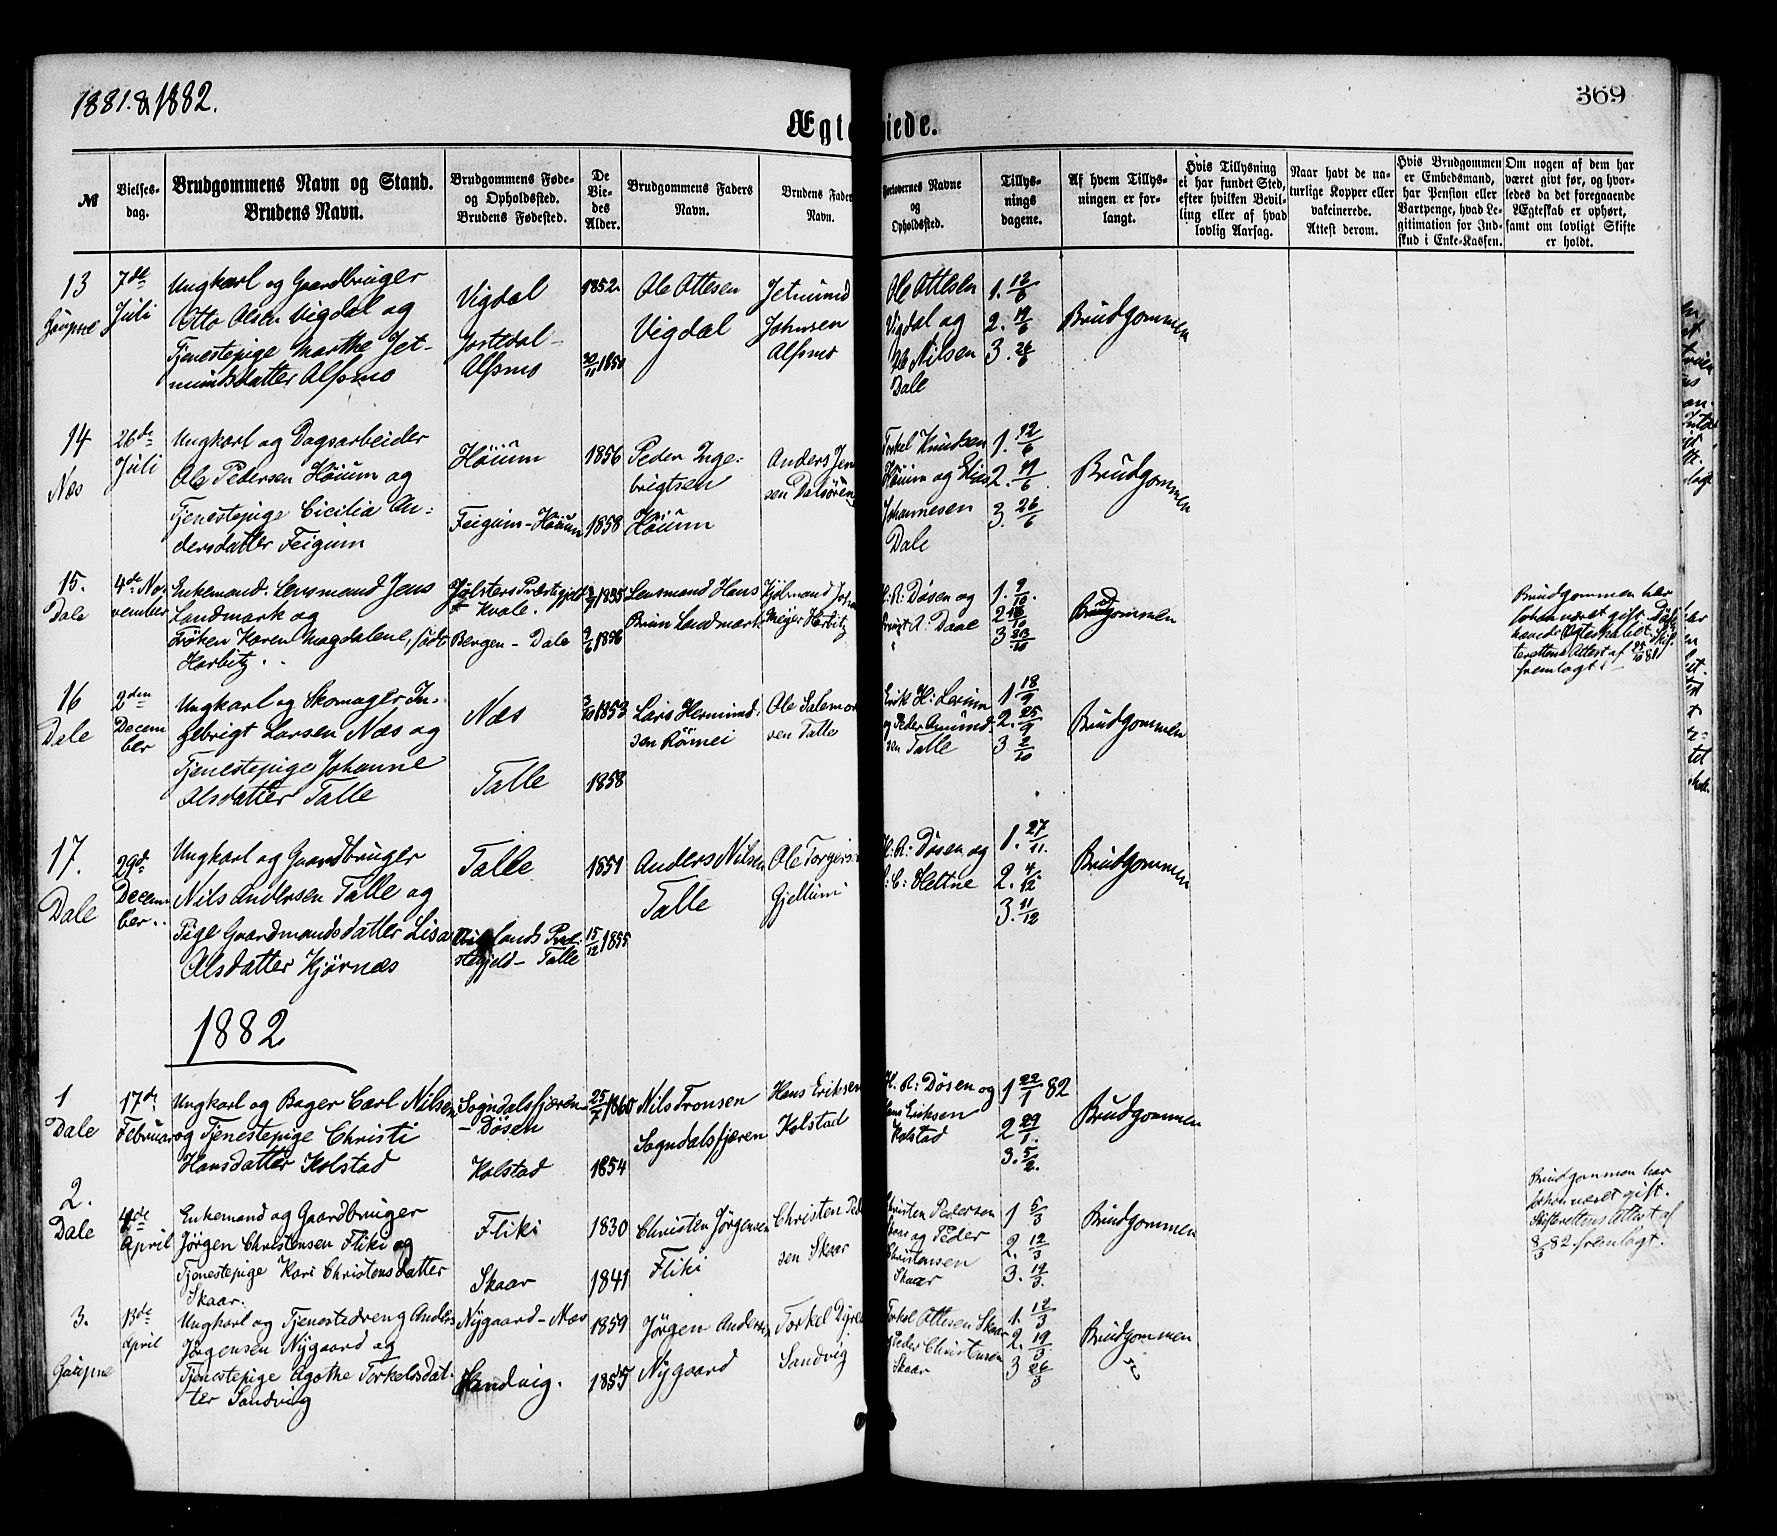 1881.&1882.
369
Ægteviede.
№
Vielses-
dag.
Brudgommens Navn og Stand.
Brudens Navn.
Brudgommens Føde-
og Opholdssted.
Brudens Fødested.
De
Vie-
des
Alder.
Brudgommens Faders
Navn.
Brudens Fader
Navn.
Forlovernes Navne
og
Opholdssted.
Tillys-
nings
dagene.
Af hvem Tillys-
ningen er for-
langt.
Hvis Tillysning
ei har fundet Sted,
efter hvilken Bevil-
ling eller af hvad
lovlig Aarsag.
Naar havt de na-
turlige Kopper eller
vakcinerede.
Attest derom.
Hvis Brudgommen
er Embedsmand,
har Pension eller
Vartpenge, hvad Le-
gitimation for Ind-
skud i Enke-Kassen.
Om nogen af dem har
været givt før, og hvor-
ledes da det foregaaende
Ægteskab er ophørt,
samt om lovligt Skifte
er holdt.
13
Gaupne
7de
Juli
Ungkarl og Gaardbruger
Otto Olsen Vigdal og
Tjenestepige Marthe Jet-
mundsdatter Alsmo
Vigdal
Jostedal-
Alsmo
1852
30/11 1850
Ole Ottesen
Vigdal
Jetmund
Johnsen
Alsmo
Ole Ottesen
Vigdal og
Ole Nilsen
Dale
1. 12/6
2. 19/6
3. 26/6
Brudgommen
14
Næs
26de
Juli
Ungkarl og Dagsarbeider
Ole Pedersen Høium og
Tjenestepige Cicilia An-
dersdatter Feigum
Høium
Feigum-Høium
1856
1858
Peder Inge-
brigtsen
Høium
Anders Jen
sen Dalsøren
Torkel Knudsen
Høium og Elias
Johannesen
Dale
1. 12/6
2. 19/6
3. 26/6
Brudgommen
15.
Dale
4de No-
vember
Enkemand. Lensmand Jens
Landmark og
Frøken Karen Magdalene
Harbitz
Jølsters Præstegjeld
- Kvale.
Bergen - Dale
1835
1856
Lensmand Hans
Brun Landmark
Meyer Harbitz
H. R. Døsen og
A: Daae
1. 9/10.
2 16/10
3 23/10
Brudgommen
Brudgommen har
forhen været gift. Døds
havede Ægteskabet. Skif-
terettens Attest af 81
fremlagt.
16
Dale
2den
Decem
ber
Ungkarl og Skomager In-
gebrigt Larsen Næs og
Tjenestepige Johanne
Olsdatter Talle
Næs
Talle
1853
1858
Lars Hermund-
sen Rømei
Ole Salemon
sen Talle
Erik H: Lerum
og Peder Amund-
sen Talle
1 18/9
2. 25/9
3 2/10
Brudgommen
17.
Dale
29de
Decem
ber.
Ungkarl og Gaardbruger
Nils Andersen Talle og
Pige Gaardmandsdatter Lisa
Olsdatter Kjørnæs
Talle
stegjeld - Talle
1851
15/12 1855
Anders Nilsen
Talle
Ole Torgers
Gjellum
H. R: Døsen og
C: Hettne
1. 27/11.
2. 4/12
3. 11/12
Brudgommen
1882
1
Dale
17de
Februar
Ungkarl og Bager Carl Nilsen
og Tjenestepige Christi
Hansdatter Kolstad
Sogndalsfjæren
- Døsen
Kolstad
25/7 1860
1854
Nils Tronsen
Sogndalsfjæren
Hans Eriksen
Kolstad
H. R: Døsen og
Hans Eriksen
Kolstad
1 22/1 82
2 29/1.
3. 5/2.
Brudgommen
2.
Dale
4de
April
Enkemand og Gaardbruger
Jørgen Christensen Fliki og
Tjenestepige Kari Christensdatter
Skaar.
Fliki
Skaar
1830
1841
Christen Jørgensen
Fliki
Christen Peder
sen Skaar
Christen Pedersen
Skaar og Peder
Christensen
Skaar
1 5/3
2. 12/3
3. 19/3.
Brudgommen
Brudgommen har
forhen været gift.
Skifterettens Attest af
8/3 82 fremlagt.
3.
Gaupne
13de
April
Ungkarl og Tjenestedreng Anders
Jørgensen Nygaard og
Tjenestepige Agothe Torkelsdat-
ter Sandvig
Nygaard - Næs
Sandvig.
1859
1855
Jørgen Andersen
Nygaard
Torkel
Sandvig
Torkel Ottesen Skaar
Peder Christensen
Skaar
1. 12/3
2. 19/3
3 26/3
Brudgommen